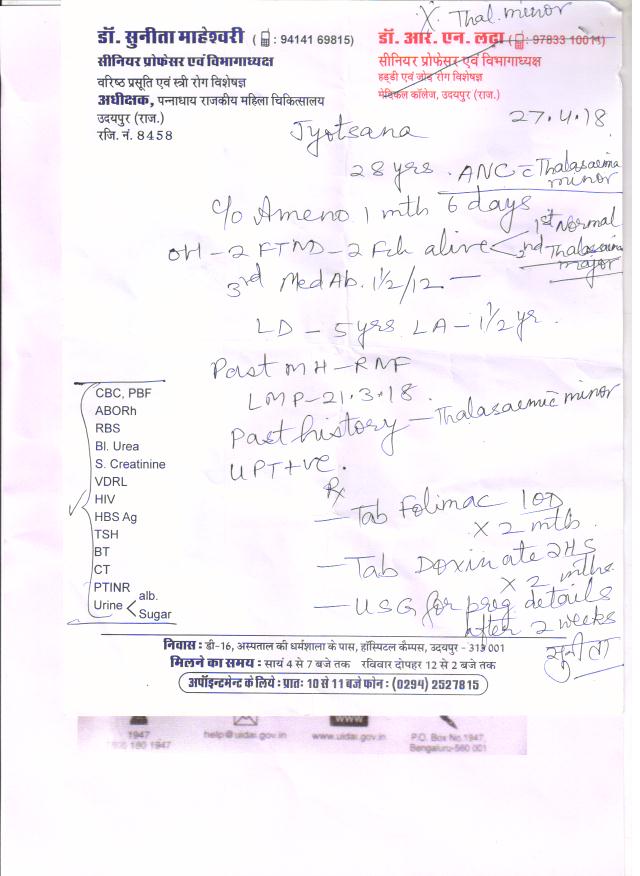 X Thal. minor
डॉ. सुनीता माहेश्वरी ( : 94141 69815)
सीनियर प्रोफेसर एवं विभागाध्यक्ष
वरिष्ठ प्रसूति एवं स्त्री रोग विशेषज्ञ
अधीक्षक, पन्नाधाय राजकीय महिला चिकित्सालय
उदयपुर (राज.)
रजि. नं. 8458
डॉ. आर. एन. लढ़ा ( : 97833 10011)
सीनियर प्रोफेसर एवं विभागाध्यक्ष
हड्डी एवं जोड़ रोग विशेषज्ञ
मेडिकल कॉलेज, उदयपुर (राज.)
27.4.18
Jyotsana
28 yrs. ANC c̄ Thalasaemia minor
c/o Ameno 1 mth 6 days
OH - 2 FTND - 2 Fch alive < 1st Normal
2nd Thalasaemia major
3rd Med Ab. 1½/12 —
LD - 5 yrs LA - 1½ yr.
Past MH - RNF
LMP - 21.3.18.
Past history - Thalasaemic minor
UPT +ve.
CBC, PBF
ABORh
RBS
Bl. Urea
S. Creatinine
VDRL
HIV
HBS Ag
TSH
BT
CT
PTINR
Urine < alb.
Sugar
Rx
— Tab Folimac 1 OD
X 2 mth.
— Tab Doxinate 2HS
X 2 mths
— USG for preg details
after 2 weeks
सुनीता
निवास : डी-16, अस्पताल की धर्मशाला के पास, हॉस्पिटल कैम्पस, उदयपुर - 313 001
मिलने का समय : सायं 4 से 7 बजे तक रविवार दोपहर 12 से 2 बजे तक
अपॉइन्टमेन्ट के लिये : प्रातः 10 से 11 बजे फोन : (0294) 2527815
1947
1800 180 1947
help@uidai.gov.in
www
www.uidai.gov.in
P.O. Box No.1947,
Bengaluru-560 001